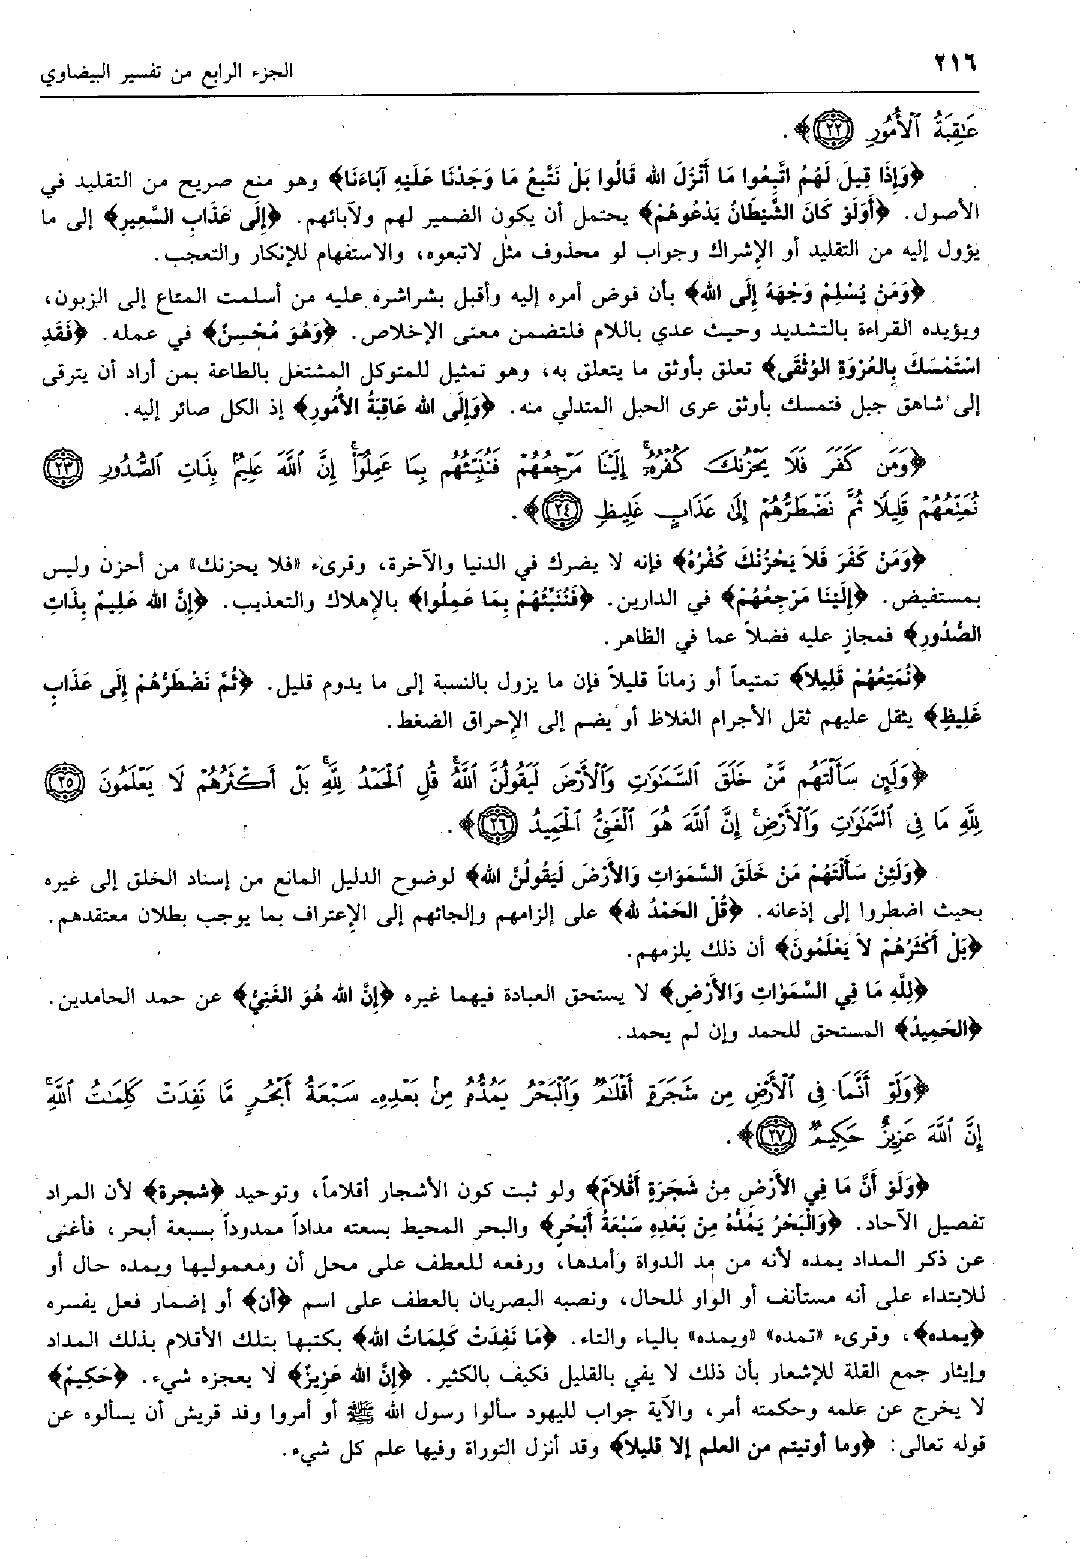 ٢١٦
الجزء الرابع من تفسير البيضاوي
عَٰقِبَةُ ٱلْأُمُورِ ﴿٢٢﴾﴾.
﴿وَإِذَا قِيلَ لَهُمُ اتَّبِعُوا مَا أَنْزَلَ الله قَالُوا بَلْ نَتَّبِعُ مَا وَجَدْنَا عَلَيْهِ آبَاءَنَا﴾ وهو منع صريح من التقليد في
الأصول. ﴿أَوَلَوْ كَانَ الشَّيْطَانُ يَدْعُوهُمْ﴾ يحتمل أن يكون الضمير لهم ولآبائهم. ﴿إِلَى عَذَابِ السَّعِيرِ﴾ إلى ما
يؤول إليه من التقليد أو الإشراك وجواب لو محذوف مثل لاتبعوه، والاستفهام للإنكار والتعجب.
﴿وَمَنْ يُسْلِمْ وَجْهَهُ إِلَى الله﴾ بأن فوض أمره إليه وأقبل بشراشره عليه من أسلمت المتاع إلى الزبون،
ويؤيده القراءة بالتشديد وحيث عدي باللام فلتضمن معنى الإخلاص. ﴿وَهُوَ مُحْسِنٌ﴾ في عمله. ﴿فَقَدِ
اسْتَمْسَكَ بِالعُرْوَةِ الوُثْقَى﴾ تعلق بأوثق ما يتعلق به، وهو تمثيل للمتوكل المشتغل بالطاعة بمن أراد أن يترقى
إلى شاهق جبل فتمسك بأوثق عرى الحبل المتدلي منه. ﴿وَإِلَى الله عَاقِبَةُ الأُمُورِ﴾ إذ الكل صائر إليه.
﴿وَمَن كَفَرَ فَلَا يَحْزُنكَ كُفْرُهُۥٓ إِلَيْنَا مَرْجِعُهُمْ فَنُنَبِّئُهُم بِمَا عَمِلُوٓا۟ إِنَّ ٱللَّهَ عَلِيمٌۢ بِذَاتِ ٱلصُّدُورِ ﴿٢٣﴾
نُمَتِّعُهُمْ قَلِيلًا ثُمَّ نَضْطَرُّهُمْ إِلَىٰ عَذَابٍ غَلِيظٍ ﴿٢٤﴾﴾.
﴿وَمَنْ كَفَرَ فَلاَ يَحْزُنْكَ كُفْرُهُ﴾ فإنه لا يضرك في الدنيا والآخرة، وقرىء «فلا يحزنك» من أحزن وليس
بمستفيض. ﴿إِلَيْنَا مَرْجِعُهُمْ﴾ في الدارين. ﴿فَنُنَبِّئُهُمْ بِمَا عَمِلُوا﴾ بالإهلاك والتعذيب. ﴿إِنَّ الله عَلِيمٌ بِذَاتِ
الصُّدُورِ﴾ فمجاز عليه فضلاً عما في الظاهر.
﴿نُمَتِعُهُمْ قَلِيلاً﴾ تمتيعاً أو زماناً قليلاً فإن ما يزول بالنسبة إلى ما يدوم قليل. ﴿ثُمَّ نَضْطَرُّهُمْ إِلَى عَذَابٍ
غَلِيظٍ﴾ يثقل عليهم ثقل الأجرام الغلاظ أو يضم إلى الإحراق الضغط.
﴿وَلَئِن سَأَلْتَهُم مَّنْ خَلَقَ ٱلسَّمَٰوَٰتِ وَٱلْأَرْضَ لَيَقُولُنَّ ٱللَّهُ قُلِ ٱلْحَمْدُ لِلَّهِ بَلْ أَكْثَرُهُمْ لَا يَعْلَمُونَ ﴿٢٥﴾
لِلَّهِ مَا فِى ٱلسَّمَٰوَٰتِ وَٱلْأَرْضِ إِنَّ ٱللَّهَ هُوَ ٱلْغَنِىُّ ٱلْحَمِيدُ ﴿٢٦﴾﴾.
﴿وَلَئِنْ سَأَلْتَهُمْ مَنْ خَلَقَ السَّمَوَاتِ وَالأَرْضَ لَيَقُولُنَّ الله﴾ لوضوح الدليل المانع من إسناد الخلق إلى غيره
بحيث اضطروا إلى إذعانه. ﴿قُلْ الحَمْدُ لله﴾ على إلزامهم وإلجائهم إلى الإعتراف بما يوجب بطلان معتقدهم.
﴿بَلْ أَكْثَرُهُمْ لاَ يَعْلَمُونَ﴾ أن ذلك يلزمهم.
﴿لِلَّهِ مَا فِي السَّمَوَاتِ وَالأَرْضِ﴾ لا يستحق العبادة فيهما غيره ﴿إِنَّ الله هُوَ الغَنِيُّ﴾ عن حمد الحامدين.
﴿الحَمِيدُ﴾ المستحق للحمد وإن لم يحمد.
﴿وَلَوْ أَنَّمَا فِى ٱلْأَرْضِ مِن شَجَرَةٍ أَقْلَٰمٌ وَٱلْبَحْرُ يَمُدُّهُۥ مِنۢ بَعْدِهِۦ سَبْعَةُ أَبْحُرٍ مَّا نَفِدَتْ كَلِمَٰتُ ٱللَّهِ
إِنَّ ٱللَّهَ عَزِيزٌ حَكِيمٌ ﴿٢٧﴾﴾.
﴿وَلَوْ أَنَّ مَا فِي الأَرْضِ مِنْ شَجَرَةٍ أَقْلاَمٌ﴾ ولو ثبت كون الأشجار أقلاماً، وتوحيد ﴿شجرة﴾ لأن المراد
تفصيل الآحاد. ﴿وَالْبَحْرُ يَمُدُّهُ مِنْ بَعْدِهِ سَبْعَةُ أَبْحُرٍ﴾ والبحر المحيط بسعته مداداً ممدوداً بسبعة أبحر، فأغنى
عن ذكر المداد يمده لأنه من مد الدواة وأمدها، ورفعه للعطف على محل أن ومعموليها ويمده حال أو
للابتداء على أنه مستأنف أو الواو للحال، ونصبه البصريان بالعطف على اسم ﴿أن﴾ أو إضمار فعل يفسره
﴿يمده﴾، وقرىء «تمده» «ويمده» بالياء والتاء. ﴿مَا نَفِدَتْ كَلِمَاتُ الله﴾ بكتبها بتلك الأقلام بذلك المداد
وإيثار جمع القلة للإشعار بأن ذلك لا يفي بالقليل فكيف بالكثير. ﴿إِنَّ الله عَزِيزٌ﴾ لا يعجزه شيء. ﴿حَكِيمٌ﴾
لا يخرج عن علمه وحكمته أمر، والآية جواب لليهود سألوا رسول الله ﷺ أو أمروا وفد قريش أن يسألوه عن
قوله تعالى: ﴿وما أوتيتم من العلم إلا قليلاً﴾ وقد أنزل التوراة وفيها علم كل شيء.